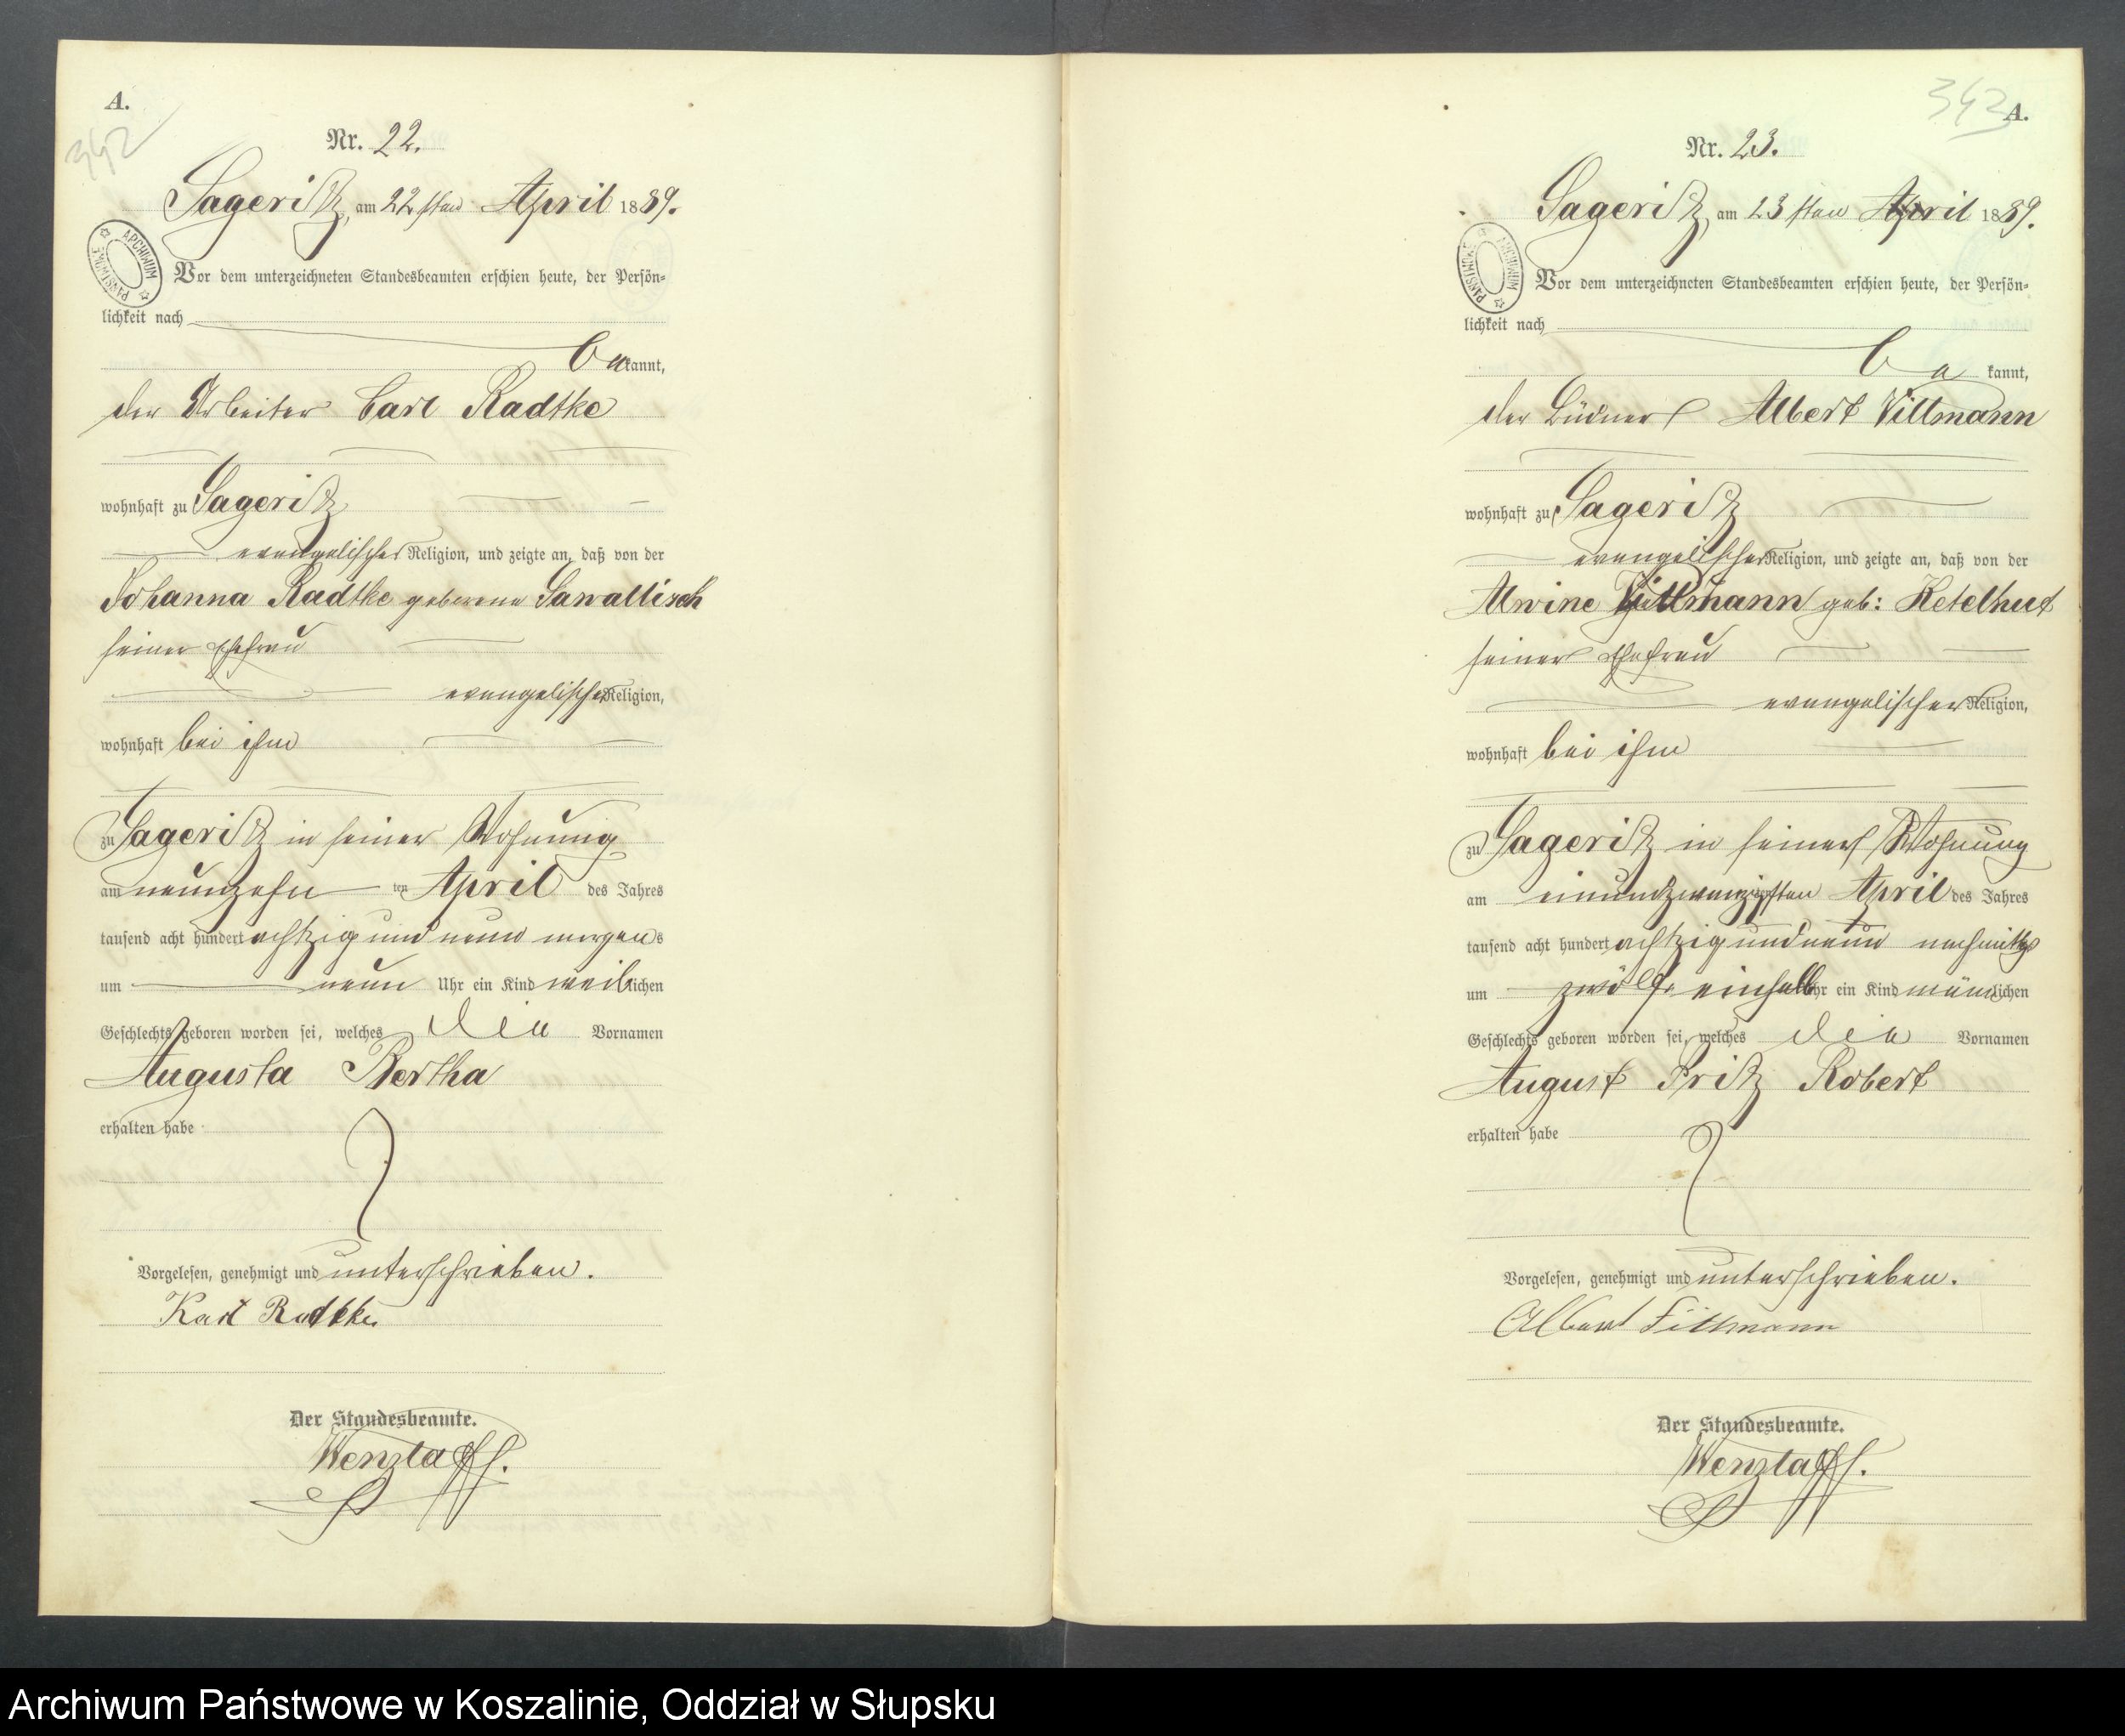 A.
342
Nr. 22.
Sageritz, am 22 sten April 1889.
ARCHIWUM PAŃSTWOWE
Vor dem unterzeichneten Standesbeamten erschien heute, der Persön-
lichkeit nach
be kannt,
der Arbeiter Carl Radtke
wohnhaft zu Sageritz
evangelischer Religion, und zeigte an, daß von der
Johanna Radtke geborene Sawallisch
seiner Ehefrau
evangelischer Religion,
wohnhaft bei ihm
zu Sageritz in seiner Wohnung
am neunzehn ten April des Jahres
tausend acht hundert achtzig und neun morgens
um neun Uhr ein Kind weiblichen
Geschlechts geboren worden sei, welches die Vornamen
Augusta Bertha
erhalten habe
Vorgelesen, genehmigt und unterschrieben.
Karl Radtke
Der Standesbeamte.
Wenzlaff.
343
A.
Nr. 23.
Sageritz, am 23 sten April 1889.
ARCHIWUM PAŃSTWOWE
Vor dem unterzeichneten Standesbeamten erschien heute, der Persön-
lichkeit nach
be kannt,
der Büdner Albert Villmann
wohnhaft zu Sageritz
evangelischer Religion, und zeigte an, daß von der
Alwine Villmann geb: Ketelhut
seiner Ehefrau
evangelischer Religion,
wohnhaft bei ihm
zu Sageritz in seiner Wohnung
am einundzwanzigsten April des Jahres
tausend acht hundert achtzig und neun nachmittgs
um zwölf einhalb Uhr ein Kind männlichen
Geschlechts geboren worden sei, welches die Vornamen
August Fritz Robert
erhalten habe
Vorgelesen, genehmigt und unterschrieben.
Albert Fillmann
Der Standesbeamte.
Wenzlaff.
Archiwum Państwowe w Koszalinie, Oddział w Słupsku